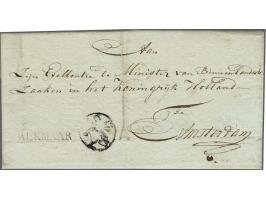 Aan
Zijn Excellentie de Minister van Binnenlandsche
Zaaken in het Koningryk Holland
Te
Amsterdam
ALKMAAR